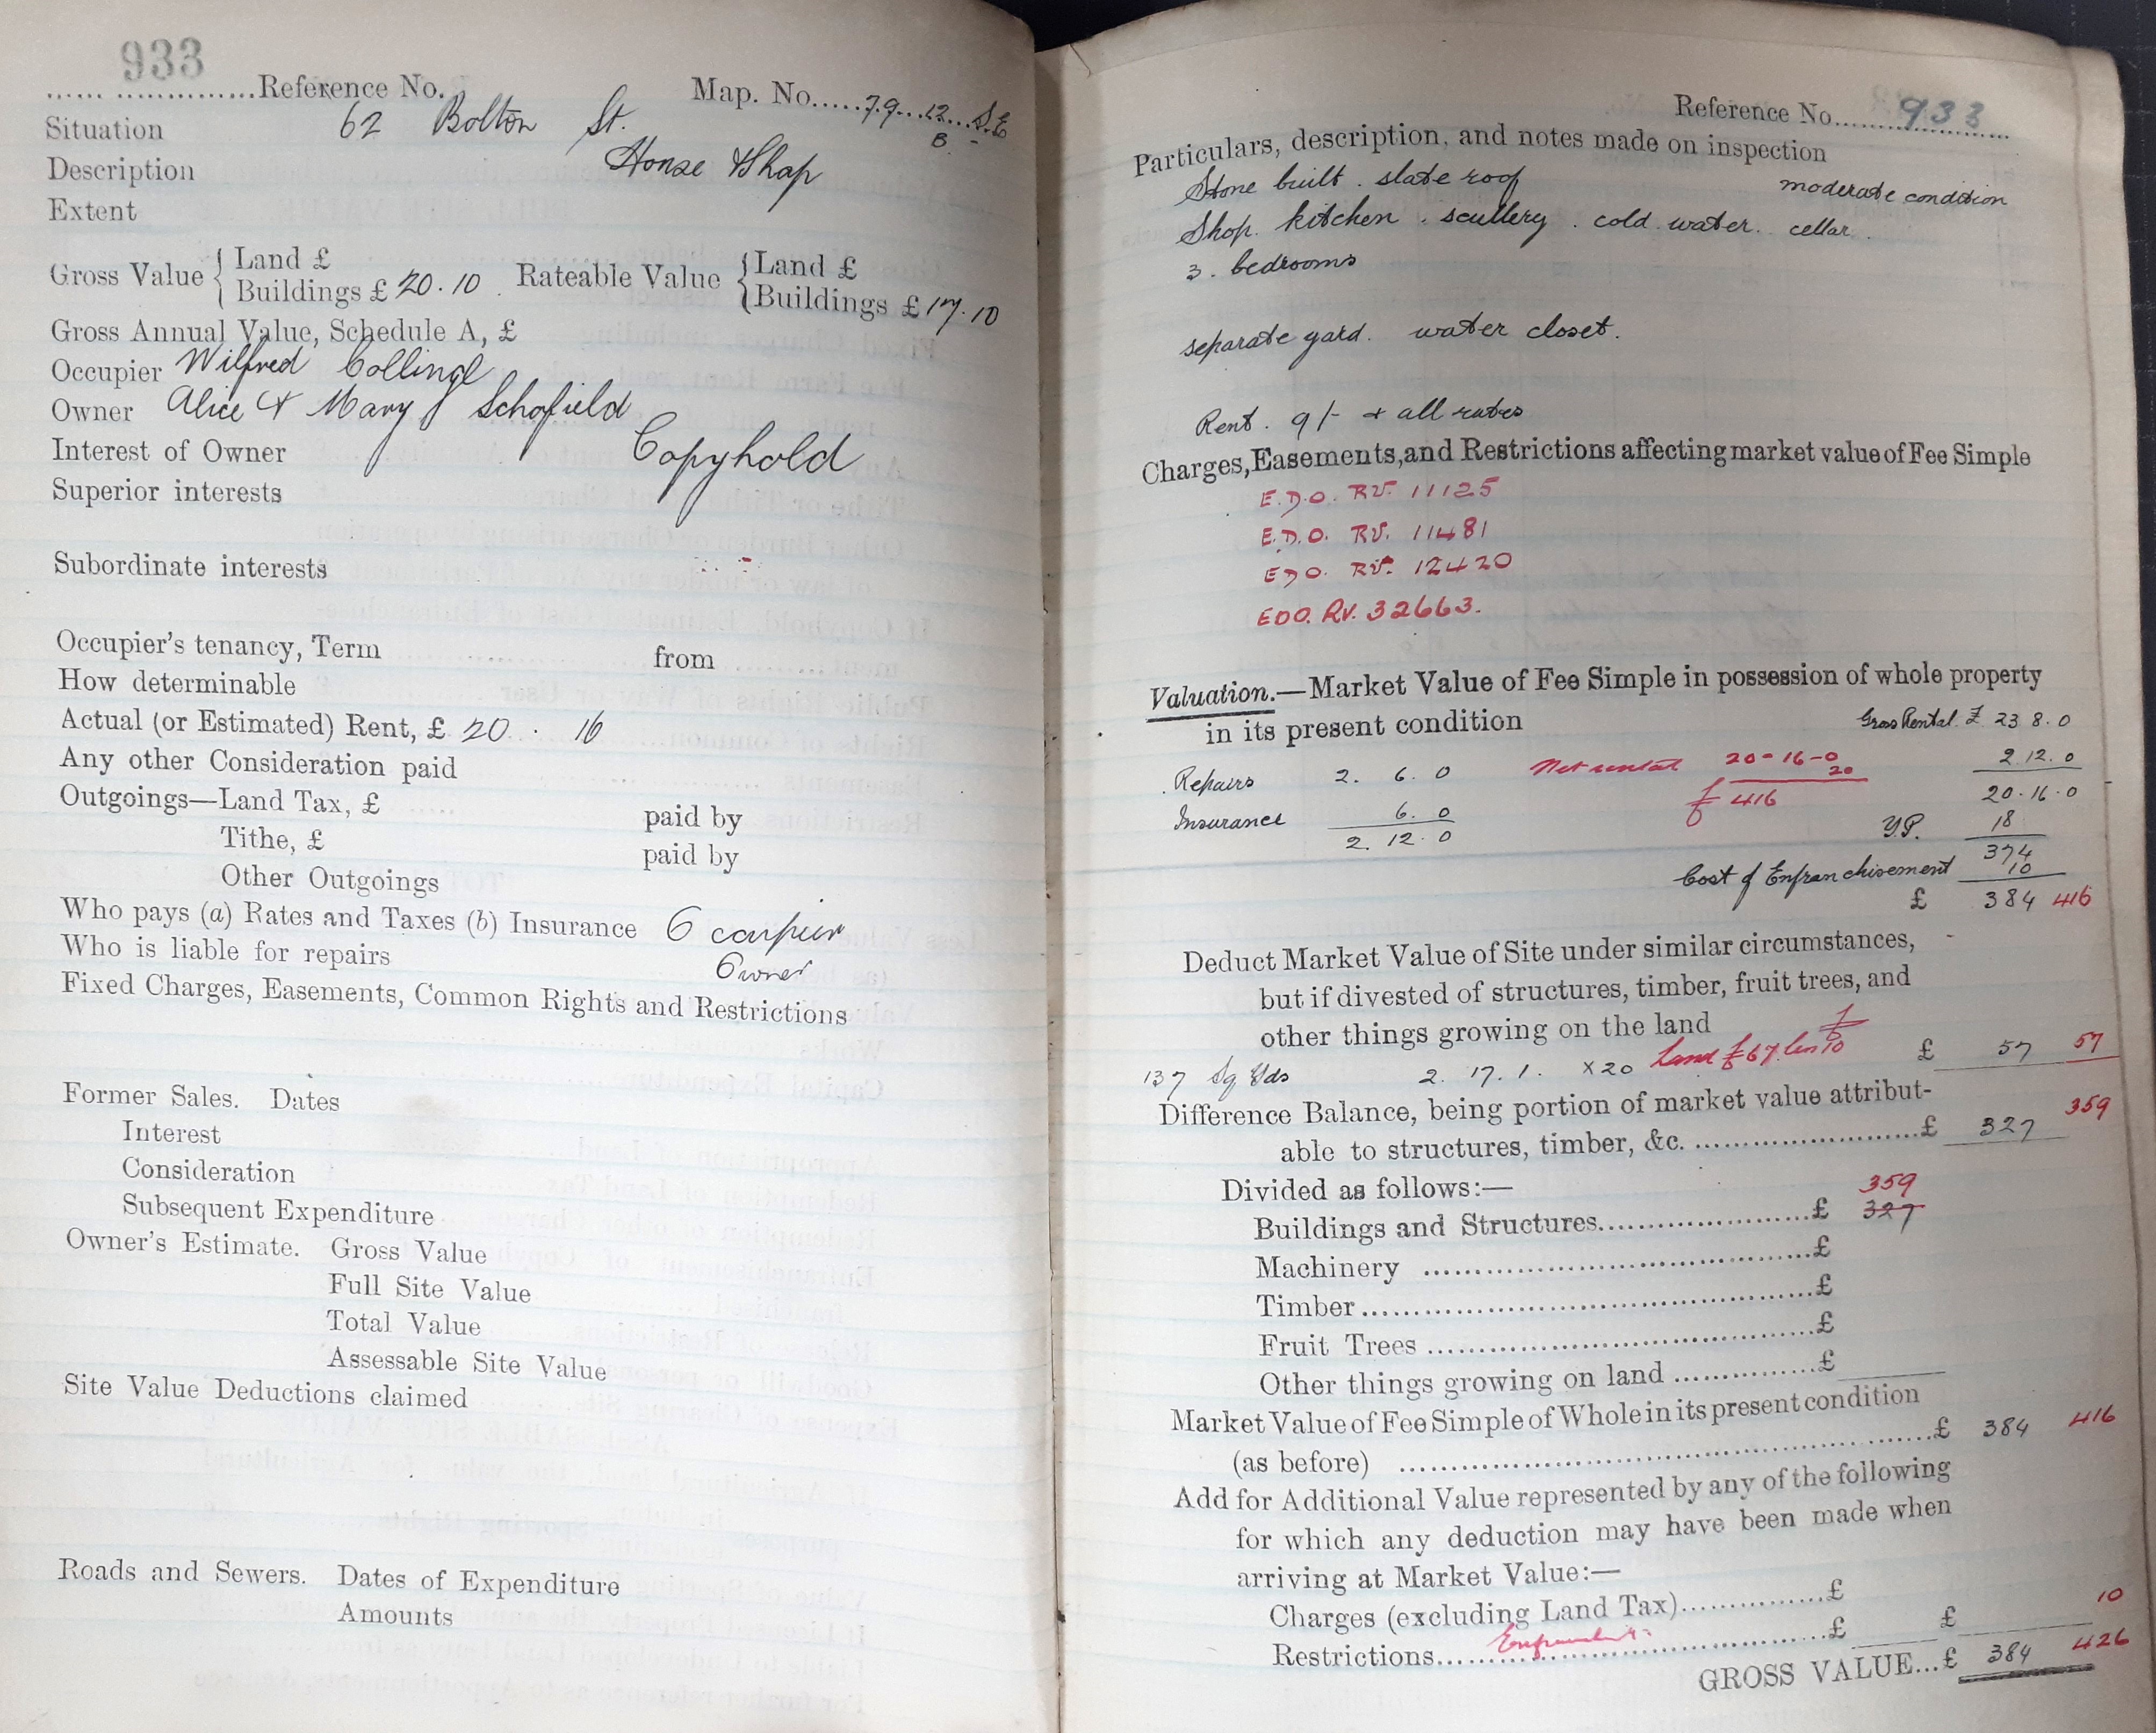 933
Reference No. Map. No. 79 12 S.E
B
Situation 62 Bolton St.
Description House & Shop
Extent
Gross Value { Land £
Buildings £ 20.10 Rateable Value { Land £
Buildings £ 17.10
Gross Annual Value, Schedule A, £
Occupier Wilfred
Owner Alice & Mary J Schofield
Interest of Owner Copyhold
Superior interests
Subordinate interests
Occupier's tenancy, Term from
How determinable
Actual (or Estimated) Rent, £ 20 . 16
Any other Consideration paid
Outgoings—Land Tax, £ paid by
Tithe, £ paid by
Other Outgoings
Who pays (a) Rates and Taxes (b) Insurance Occupier
Who is liable for repairs Owner
Fixed Charges, Easements, Common Rights and Restrictions
Former Sales. Dates
Interest
Consideration
Subsequent Expenditure
Owner's Estimate. Gross Value
Full Site Value
Total Value
Assessable Site Value
Site Value Deductions claimed
Roads and Sewers. Dates of Expenditure
Amounts
Reference No. 933
Particulars, description, and notes made on inspection
Stone built . slate roof moderate condition
Shop. kitchen . scullery . cold water . cellar .
3 . bedrooms
separate yard. water closet.
Rent . 9/- + all rates
Charges, Easements, and Restrictions affecting market value of Fee Simple
E.D.O. RV. 11125
E.D.O. RV. 11481
EDO. RV. 12420
EDO. RV. 32663.
Valuation.—Market Value of Fee Simple in possession of whole property
in its present condition Gross Rental £ 23 8.0
Repairs 2. 6. 0 Net rental 20-16-0 2.12.0
20
Insurance 6. 0 £ 416 20.16.0
2. 12. 0 Y.P. 18
374
Cost of Enfranchisement 10
£ 384 416
Deduct Market Value of Site under similar circumstances,
but if divested of structures, timber, fruit trees, and
other things growing on the land
137 Sq Yds 2. 17. 1. x20 Land £67 less 10 £ 57 57
Difference Balance, being portion of market value attribut- 359
able to structures, timber, &c. £ 327
Divided as follows:— 359
Buildings and Structures £ 327
Machinery £
Timber £
Fruit Trees £
Other things growing on land £
Market Value of Fee Simple of Whole in its present condition
(as before) £ 384 416
Add for Additional Value represented by any of the following
for which any deduction may have been made when
arriving at Market Value:—
Charges (excluding Land Tax) £ 10
Restrictions £ £
GROSS VALUE...£ 384 426